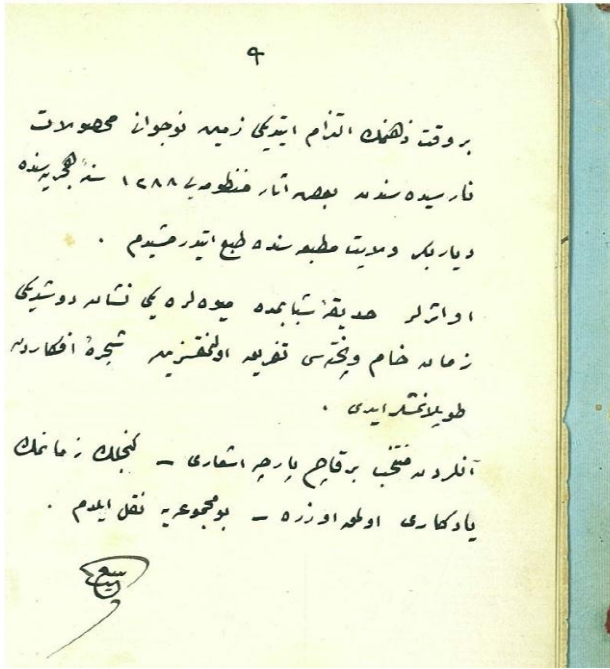 ٩
بر وقت ذهنمك التزام ايتديكى زمين نوجوانى محصولات
نارسيده سندن بعض آثار منظومه يى ١٢٨٨ سنهٔ هجريه سنده
دياربكر ولايت مطبعه سنده طبع ايتدرمشيدم .
او اثرلر حديقهٔ شبابمده ميوه لره يكى نشان دوشديكى
زمان خام و پخته سى تفريق اولنمقسزين شجرهٔ افكاردن
طوپلانمشلر ايدى .
آنلردن منتخب برقاچ پارچه اشعارى ـ كنجلك زمانمك
يادكارى اولمق اوزره ـ بو مجموعه يه نقل ايلدم .